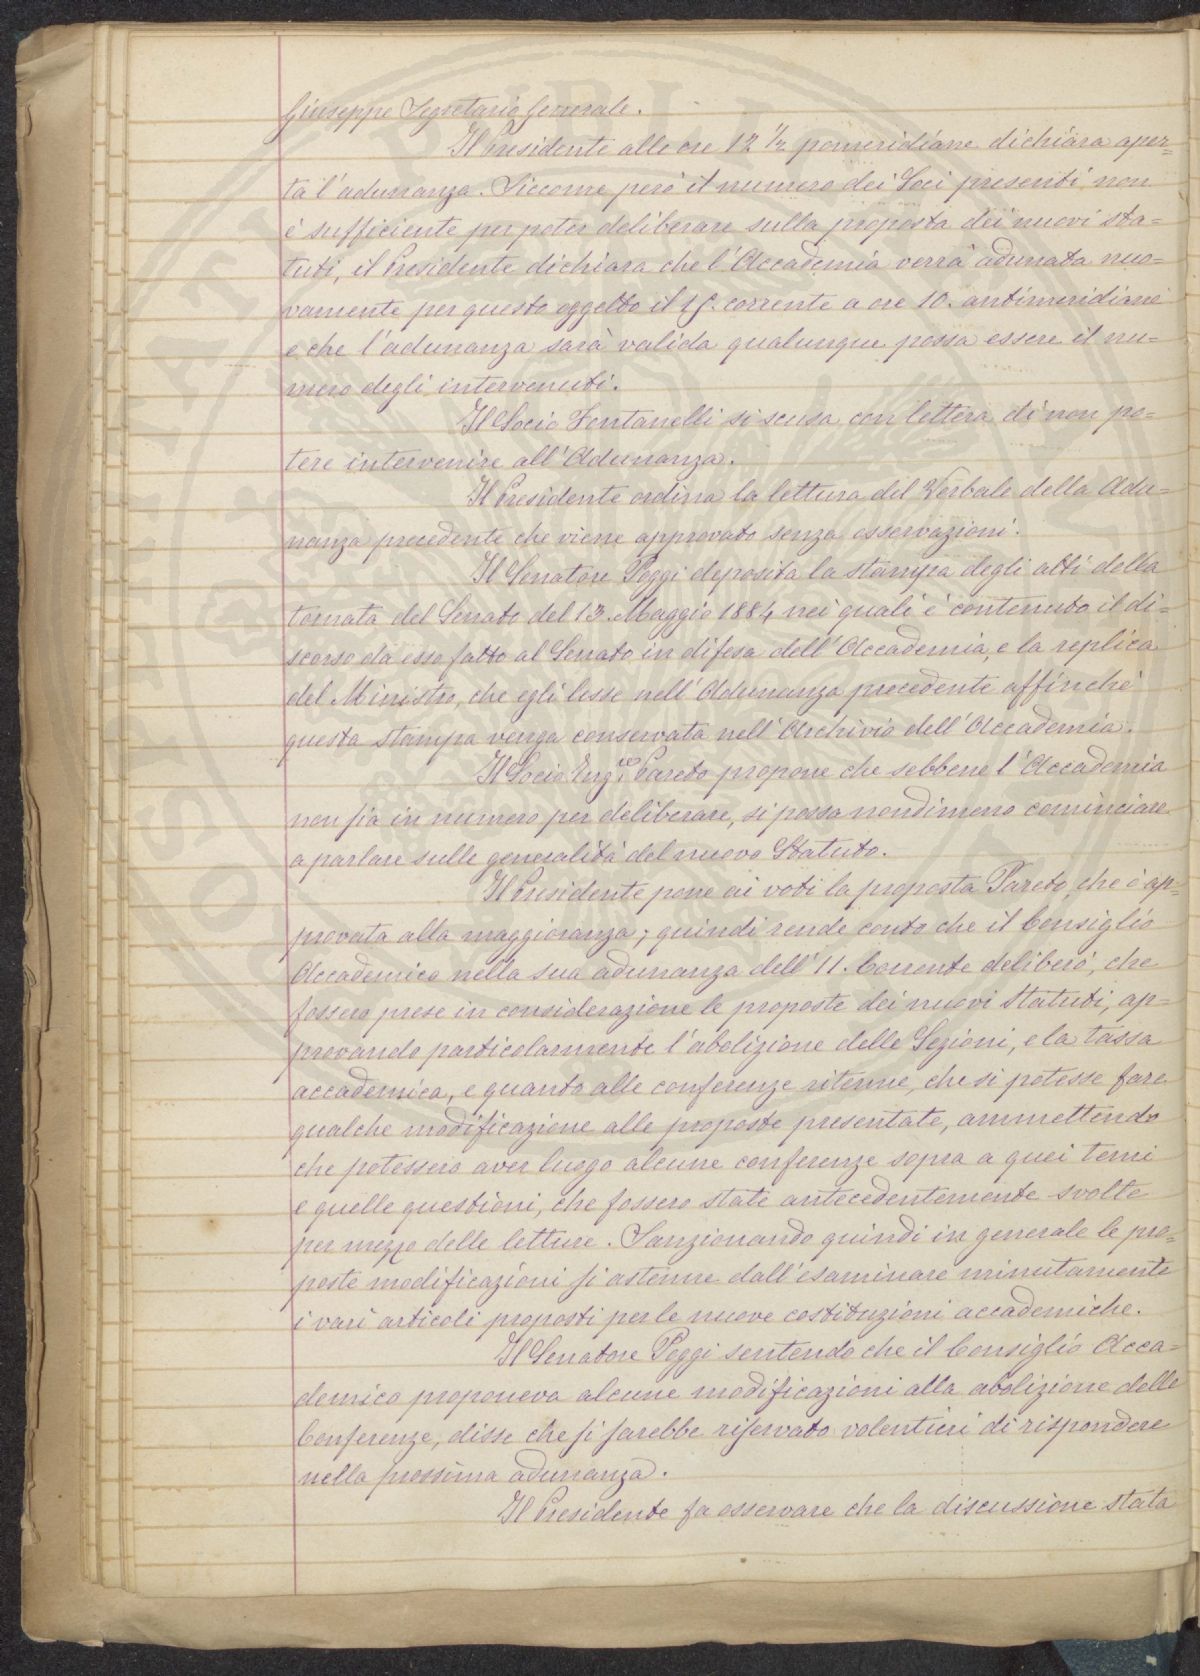 Giuseppe Segretario Generale.
Il Presidente alle ore 12 ½ pomeridiane dichiara aper=
ta l'adunanza. Siccome però il numero dei Soci presenti non
è sufficiente per poter deliberare sulla proposta dei nuovi sta=
tuti, il Presidente dichiara che l'Accademia verrà adunata nuo=
vamente per questo oggetto il corrente a ore 10. antimeridiane
e che l'adunanza sarà valida qualunque possa essere il nu=
mero degli intervenuti.
Il Socio Fontanelli si scusa con lettera di non po=
tere intervenire all'Adunanza.
Il Presidente ordina la lettura del Verbale della Adu=
nanza precedente che viene approvato senza osservazioni.
Il Senatore Poggi deposita la stampa degli atti della
tornata del Senato del 13. Maggio 1884 nei quali è contenuto il di=
scorso da esso fatto al Senato in difesa dell'Accademia, e la replica
del Ministro, che egli lesse nell'Adunanza precedente affinchè
questa stampa venga conservata nell'Archivio dell'Accademia.
Il Socio Ing.re Pareto propone che sebbene l'Accademia
non sia in numero per deliberare, si possa nondimeno cominciare
a parlare sulle generalità del nuovo Statuto.
Il Presidente pone ai voti la proposta Pareto, che è ap=
provata alla maggioranza; quindi rende conto che il Consiglio
Accademico nella sua adunanza dell'11. Corrente deliberò, che
fossero prese in considerazione le proposte dei nuovi Statuti, ap=
provando particolarmente l'abolizione delle Sezioni, e la tassa
accademica, e quanto alle conferenze ritenne, che si potesse fare
qualche modificazione alle proposte presentate, ammettendo
che potessero aver luogo alcune conferenze sopra a quei temi
e quelle questioni, che fossero state antecedentemente svolte
per mezzo delle letture. Sanzionando quindi in generale le pro=
poste modificazioni si astenne dall'esaminare minutamente
i vari articoli proposti per le nuove costituzioni accademiche.
Il Senatore Poggi sentendo che il Consiglio Acca=
demico proponeva alcune modificazioni alla abolizione delle
Conferenze, disse che si sarebbe riservato volentieri di rispondere
nella prossima adunanza.
Il Presidente fa osservare che la discussione stata